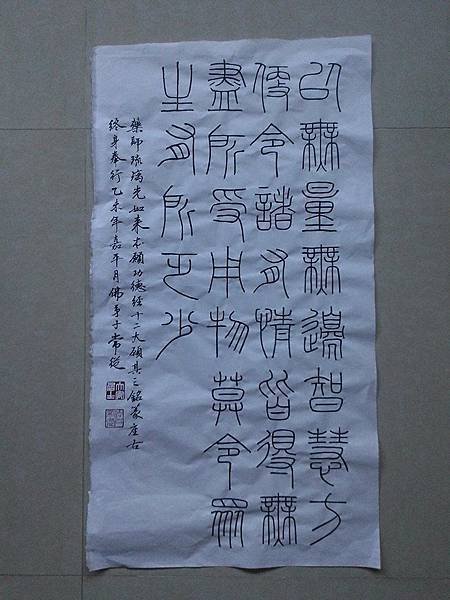 以無量無邊智慧方
便令諸有情皆得無
盡所受用物莫令眾
生有所乏少
藥師琉璃光如來本願功德經十二大願其三銘篆座右
終身奉行乙未年嘉平月佛弟子常從